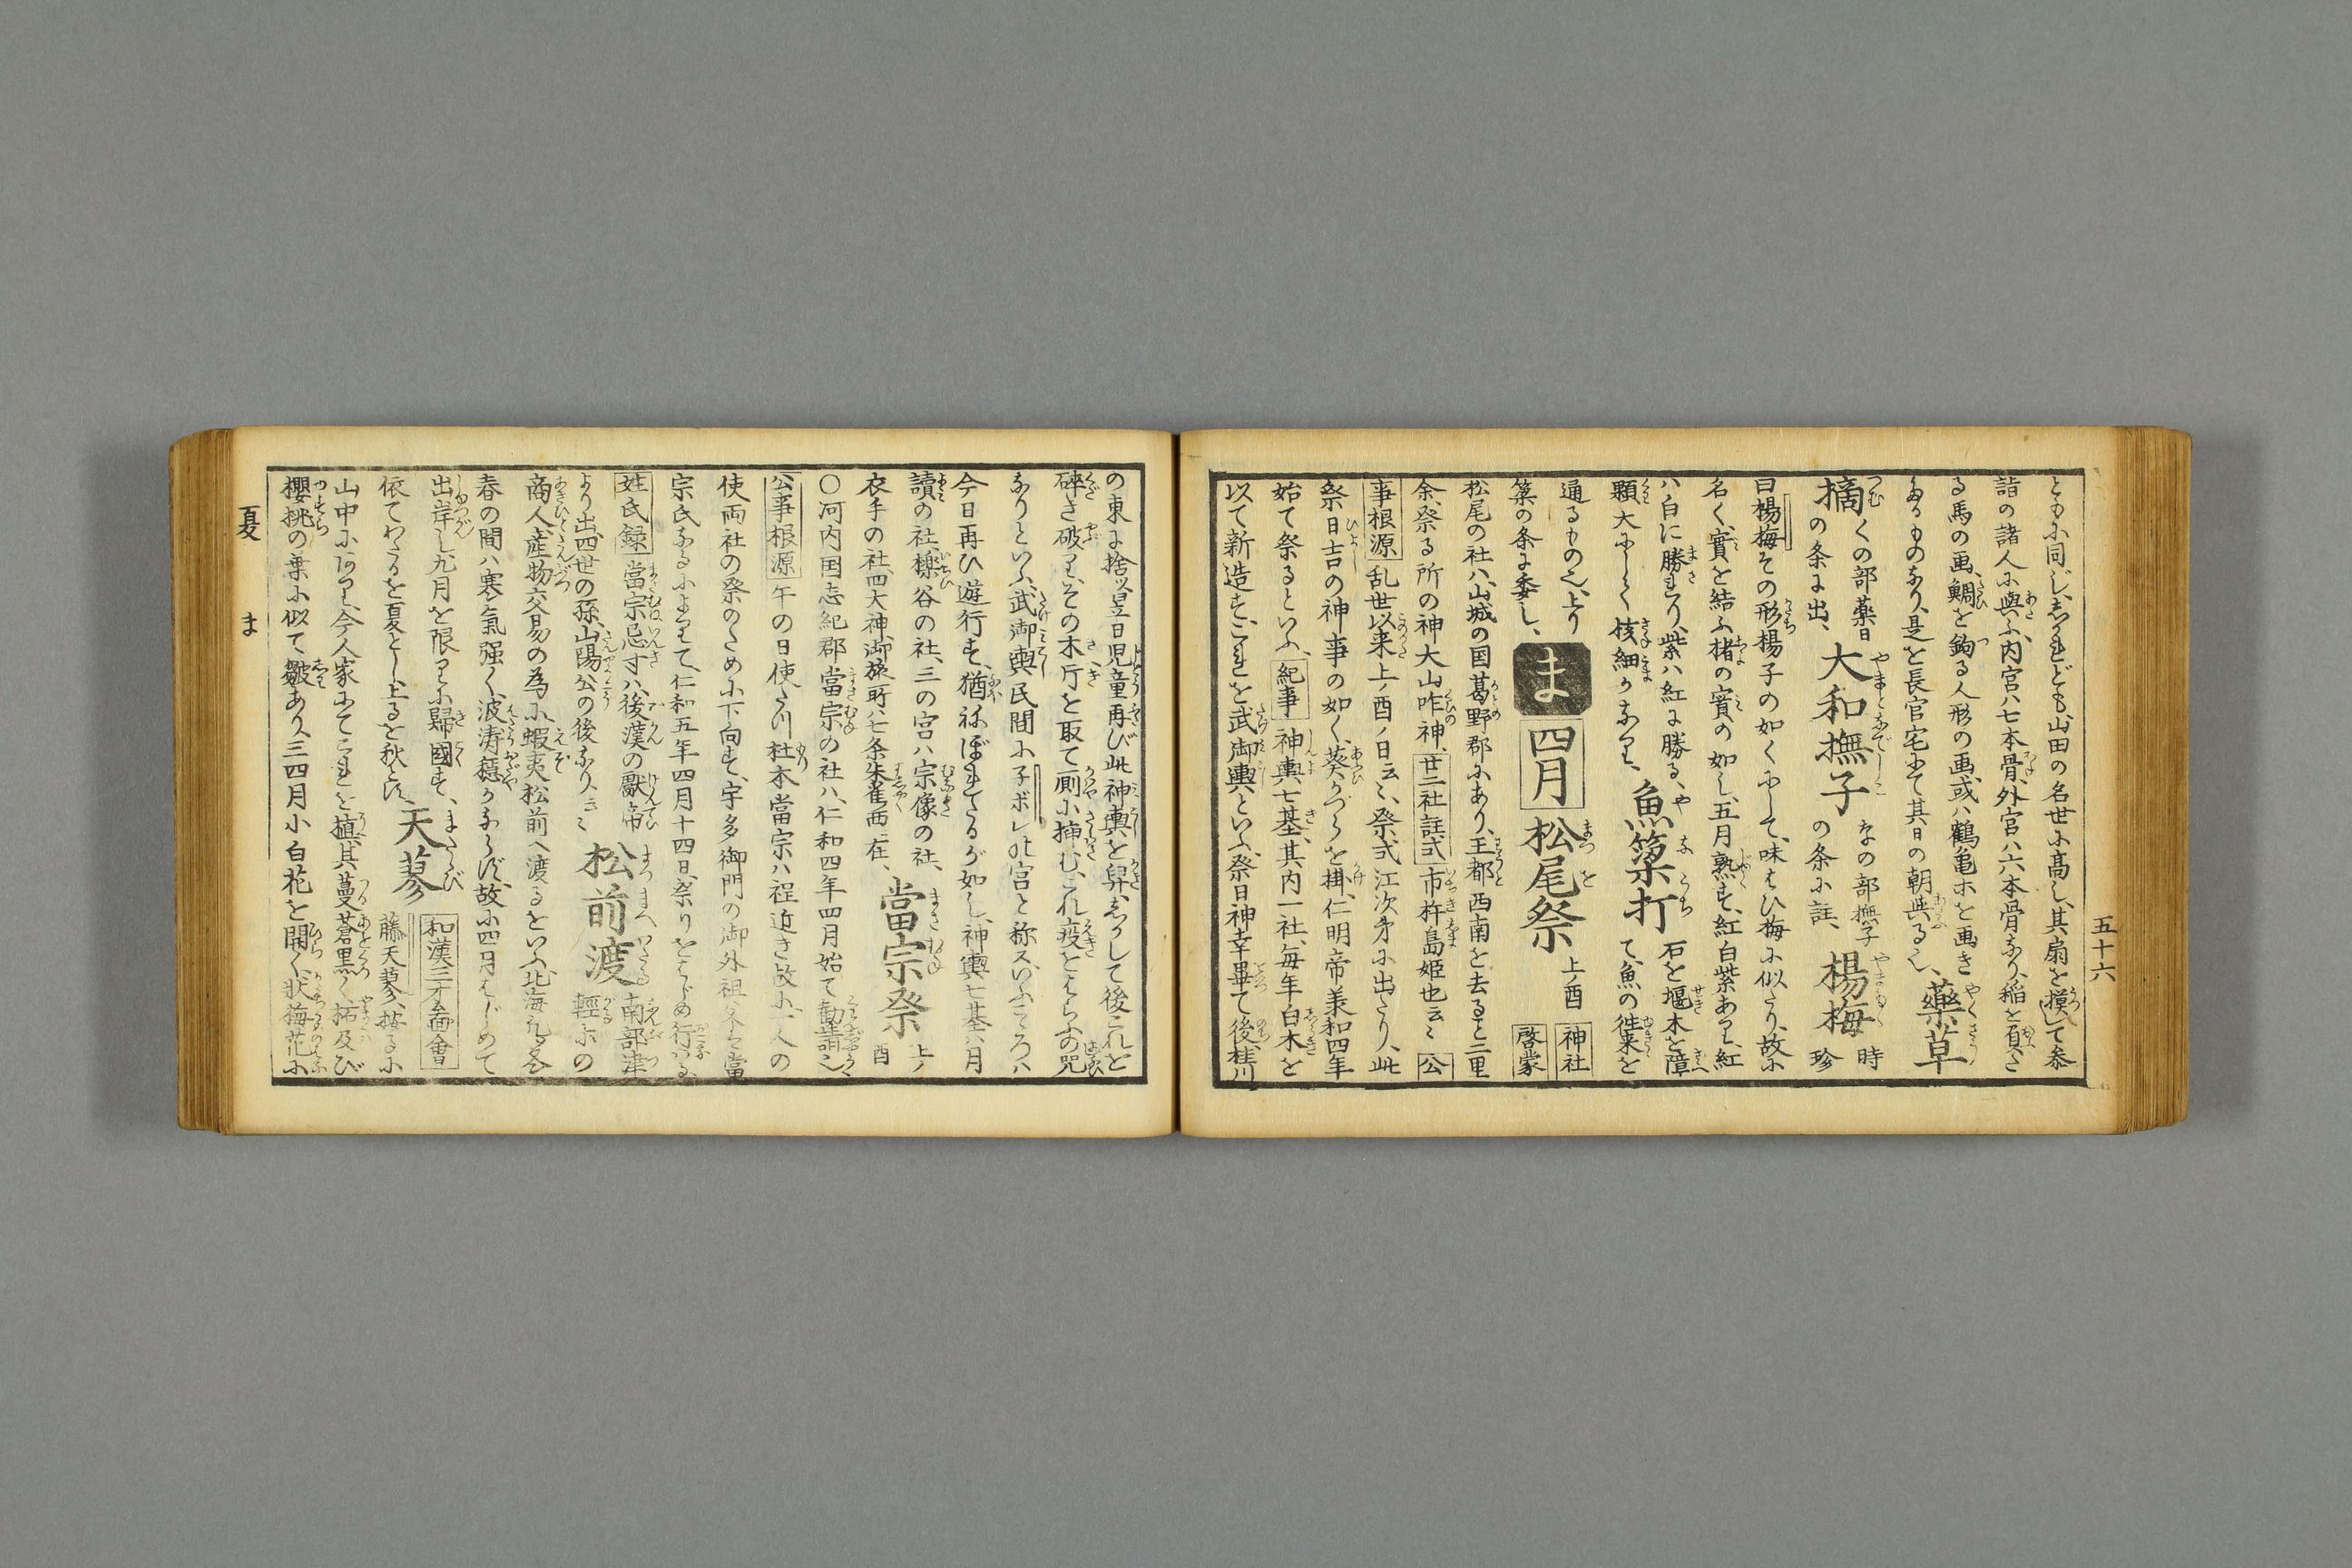 五十六
ともに同じ、しかれども、山田の名世に高し、其扇を摸して参
詣の諸人に與ふ、内宮ハ七本骨、外宮ハ六本骨なり、稲を負さ
る馬の画、鯛を釣る人形の画、或ハ鶴亀ホを画き
たるものなり、是を長官宅にて其日の朝與る也、藥草
摘 つむ くの部藥日の条に出、大和撫子 やまとなでしこ なの部撫子の条に註、楊梅 時珍
曰楊梅その形楊子の如くにして、味ひ梅に似たり、故に
名く、實を結ふ楮の實の如し、五月熟す、紅白紫あり、紅
ハ白に勝れり、紫ハ紅に勝る、
顆大にして核細かなり、魚簗打 やなうち 石を堰木を障て、魚の往来を
通るもの也、上り
簗の条に委し、
ま 四月 松尾祭 まつを 上ノ酉 神社啓蒙
松尾の社ハ、山城の国葛野郡にあり、王都西南を去ると二里
余、祭る所の神大山咋神、廿二社註式 市杵島姫也云〻 公
事根源 乱世以来上ノ酉ノ日云〻、祭式江次第に出たり、此
祭日吉の神事の如く、葵かづらを掛、仁明帝美和四年
始て祭るといふ、紀事 神輿七基、其内一社、毎年白木を
以て新造す、これを武御輿といふ、祭日神幸畢て後、桂川
の東に捨ッ、翌日児童再び此神輿を舁、しかして後これを
碎き破り、その木片を取て厠に挿む、これ疫をはらふの咒
なりといふ、武御輿民間に子ボレ此宮と称ス、いふこころハ
今日再ひ遊行す、猶ねぼれたるが如し、神輿七基ハ月
讀の社、櫟谷の社、三の宮ハ宗像の社、
衣手の社、四大神、御旅所ハ七条朱雀西在、當宗祭 まさむね 上ノ酉
〇河内国志紀郡當宗の社ハ、仁和四年四月始て勧請也
公事根源 午の日使たつ、杜本當宗ハ程近き故に一人の
使両社の祭のために下向す、宇多御門の御外祖
宗氏なるによりて、仁和五年四月十四日、祭りをはじめ行ハる、
姓氏録 當宗忌寸ハ、後漢の獻帝
より出、四世の孫、山陽公の後なり云〻 松前渡 まつまへわたる 南部津輕ホの
商人、産物交易の為に、蝦夷松前へ渡るをいふ、北海ハ冬
春の間ハ寒氣强く、波涛穏かならず、故に四月はじめて
出岸し、九月を限りに歸國す、
依てわたるを夏とし、上るを秋とす、天蓼 またたび 和漢三才圖會 藤天蓼、按るに
山中にあり、今人家にてこれを植、其蔓蒼黒く、柘及び
櫻桃の葉に似て、皺あり、三四月小白花を開く、状梅花に
夏 ま